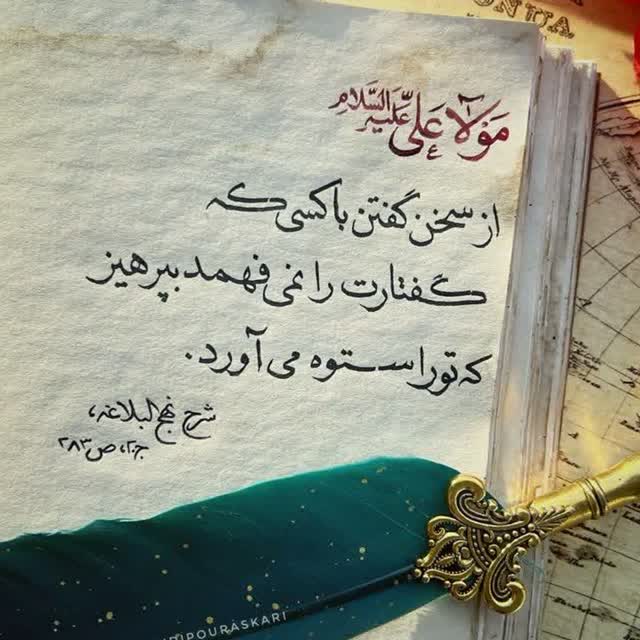 مولا علی علیه السلام
از سخن گفتن با کسی که
گفتارت را نمی فهمد بپرهیز
که تو را ستوه می آورد.
شرح نهج البلاغه،
ج۲۰، ص۲۸۳
POURASKARI